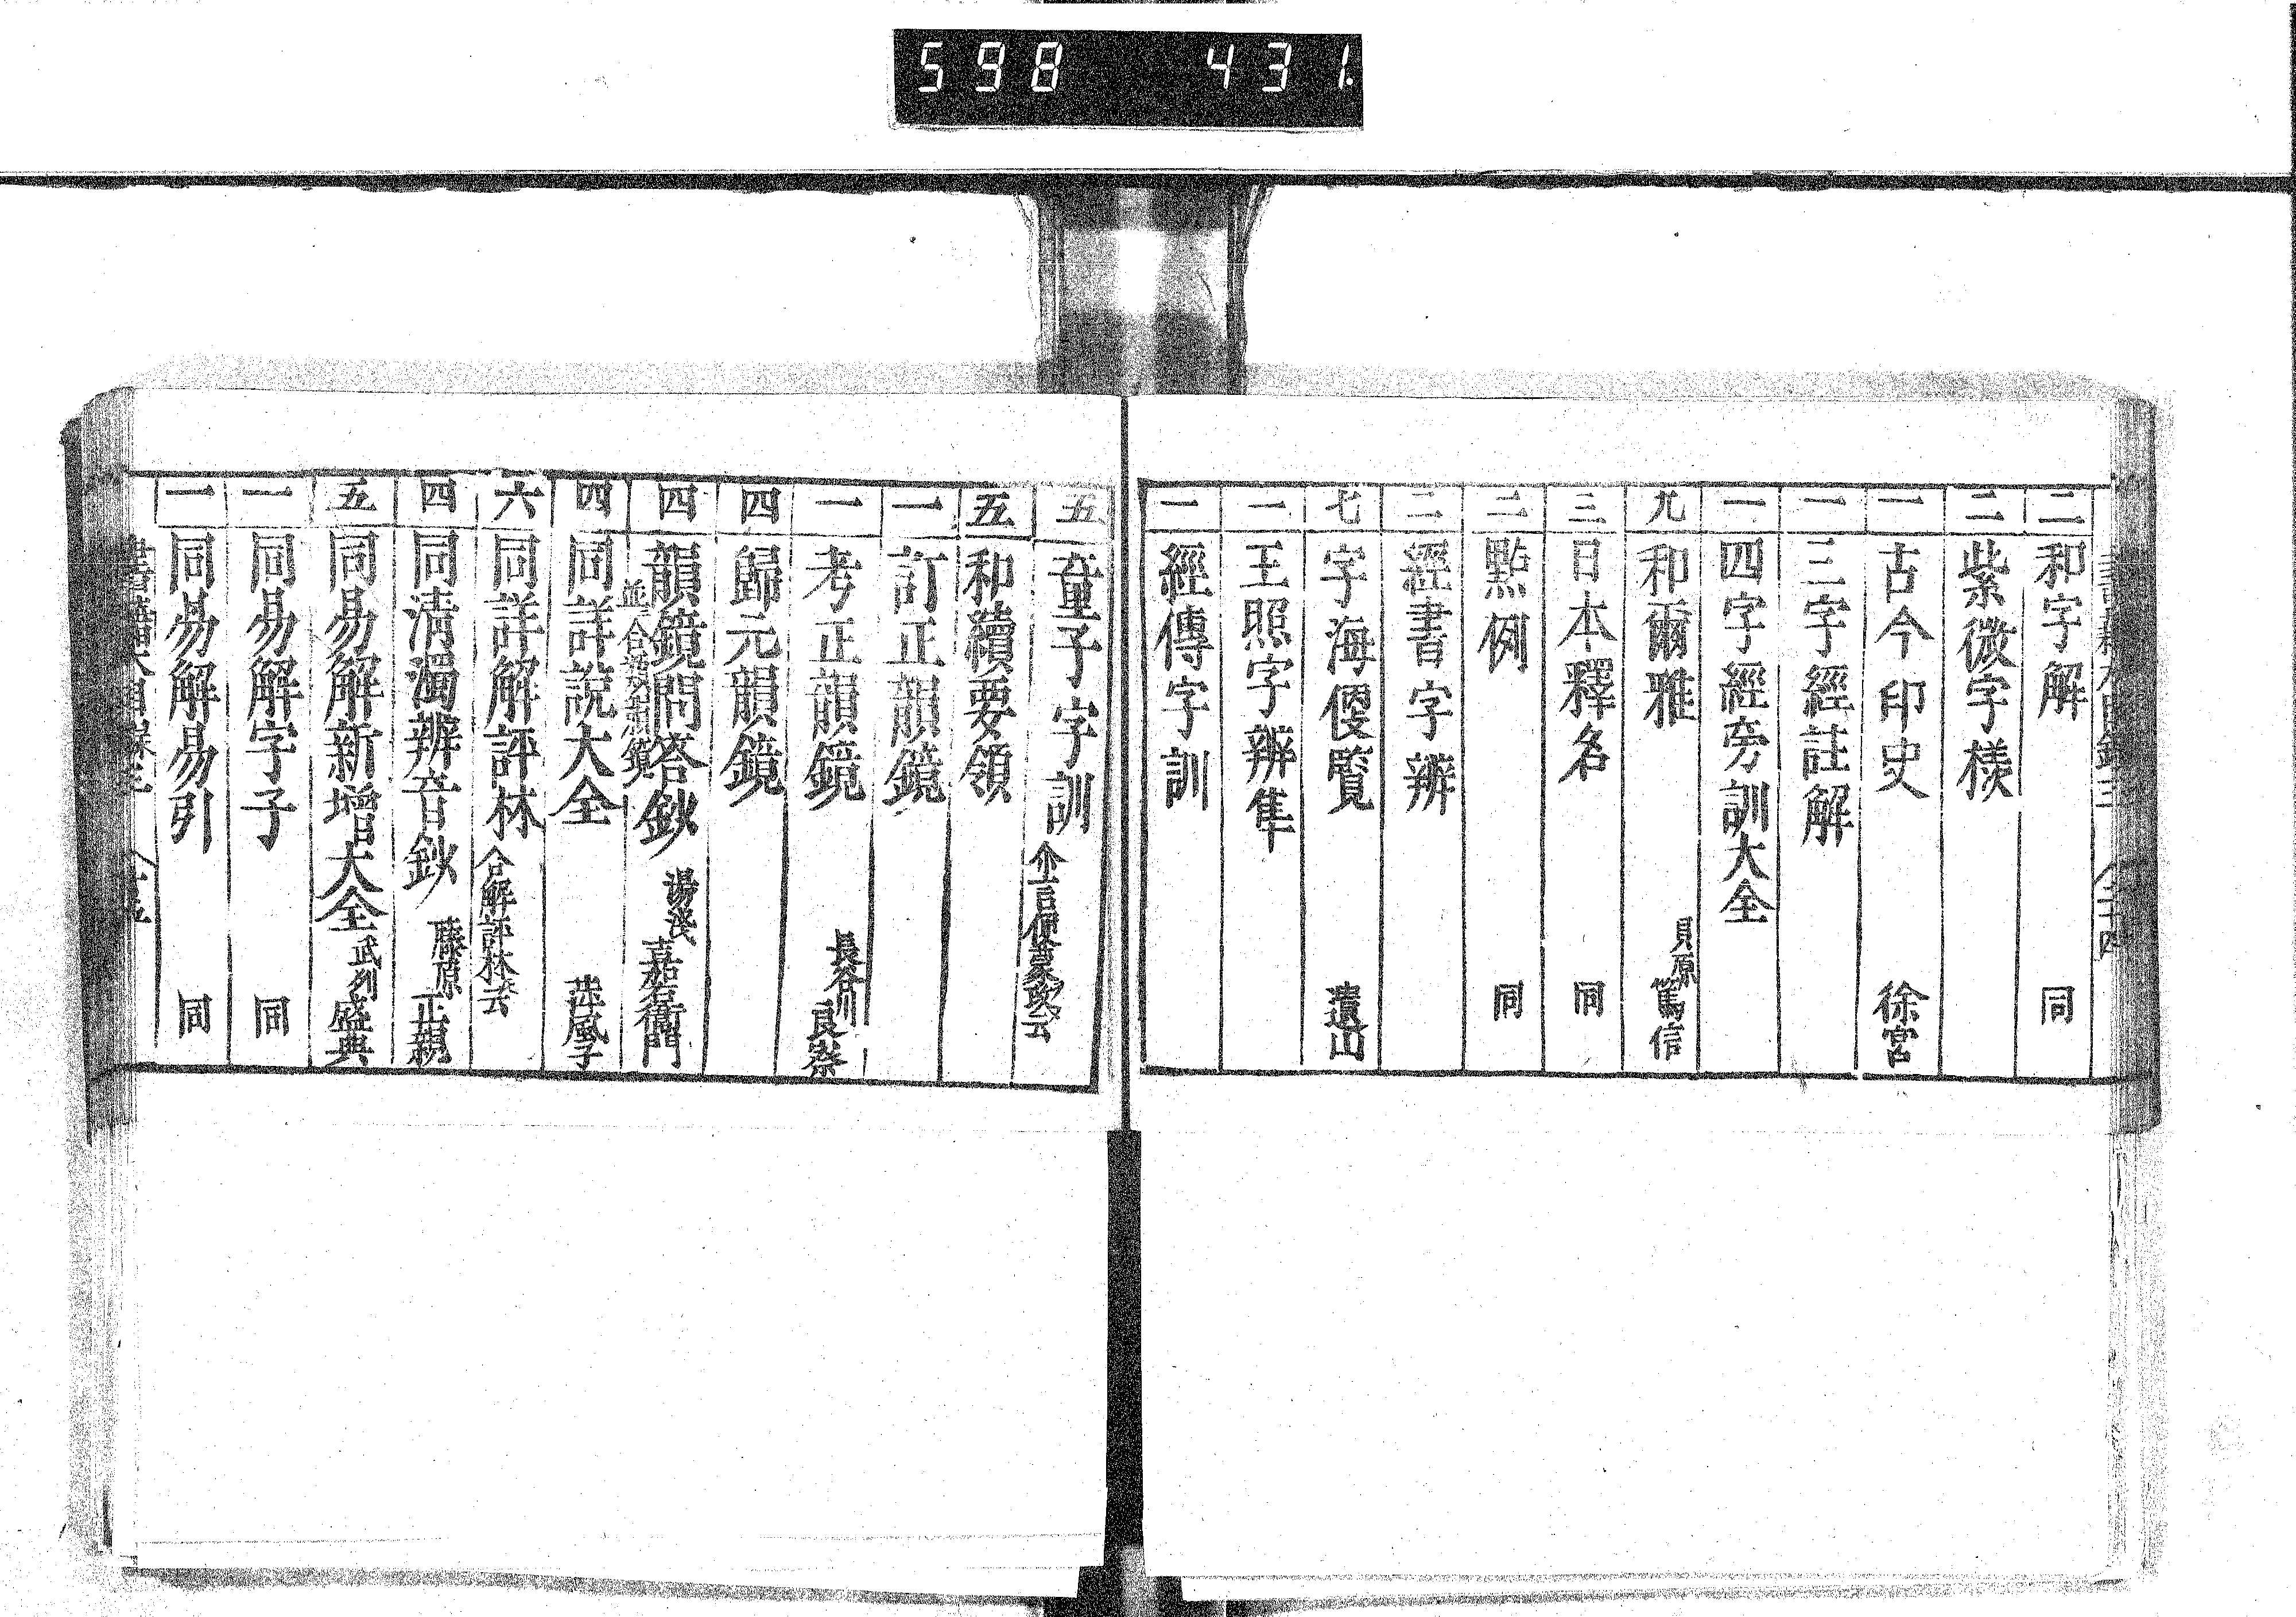 598 431.
二 和字解 同
三 紫微字樣
一 古今印史 徐官
一 三字經註解
一 四字經旁訓大全
九 和爾雅 貝原篤信
三 日本釋名 同
二 點例 同
二 經書字辨
七 字海便覧
一 王照字辨隼
一 經傳字訓
五 童子字訓
五 和續要領
一 訂正韻鏡
一 考正韻鏡 長谷川良崇
四 歸元韻鏡
四 韻鏡問答鈔 湯淺
四 同詳說大全
六 同詳解評林 合解評林ト云
四 同清濁辨音鈔 藤原正親
五 同易解新增大全 武列盛典
一 同易解字子 同
一 同易解易引 同